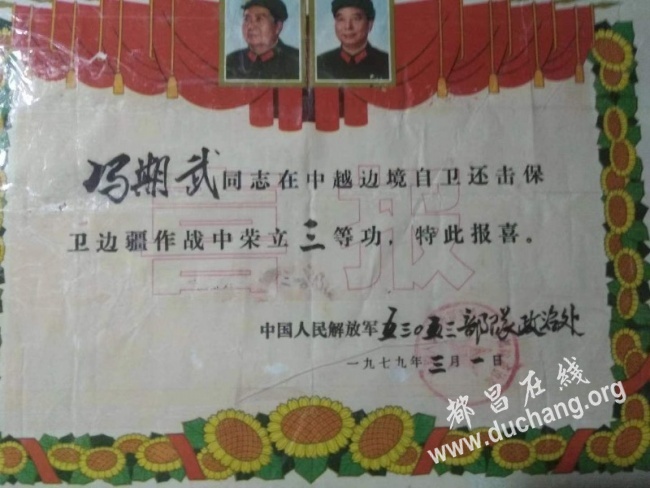 喜报
冯期武同志在中越边境自卫还击保
卫边疆作战中荣立三等功，特此报喜。
中国人民解放军五三〇五三部隊政治处
一九七九年三月一日
都昌在線
www.duchang.org